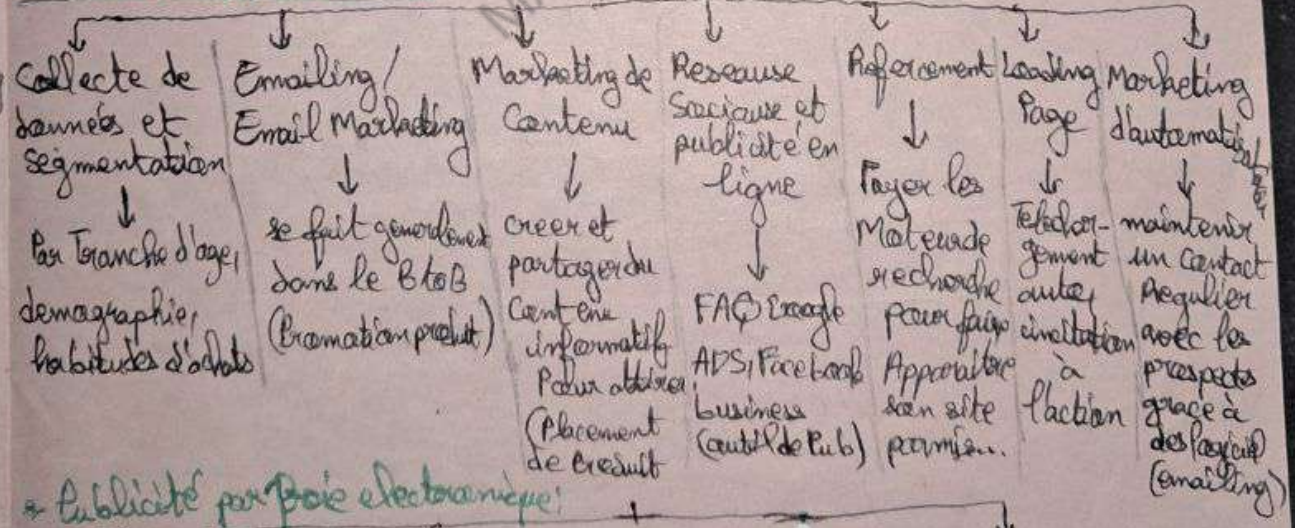 Collecte de
données et
segmentation
Par Tranche d'age,
demographie,
habitudes d'achats
Emailing /
Email Marketing
se fait generalement
dans le B to B
(Promotion produit)
Marketing de
Contenu
creer et
partager du
Contenu
informatif
Pour attirer
(Placement
de Produit
Reseause
Sociause et
publicité en
ligne
FAQ Google
ADS, Facebook
business
(outil de Pub)
Refercement
Payer les
Moteurs de
recherche
pour faire
Apparaitre
son site
parmis...
Landing
Page
Telechar-
gement
auto,
incitation
à
l'action
Marketing
d'automatisation
maintenir
un Contact
Regulier
avec les
prospects
grace à
des logiciel
(emailing)
* Publicité par voie electronique: